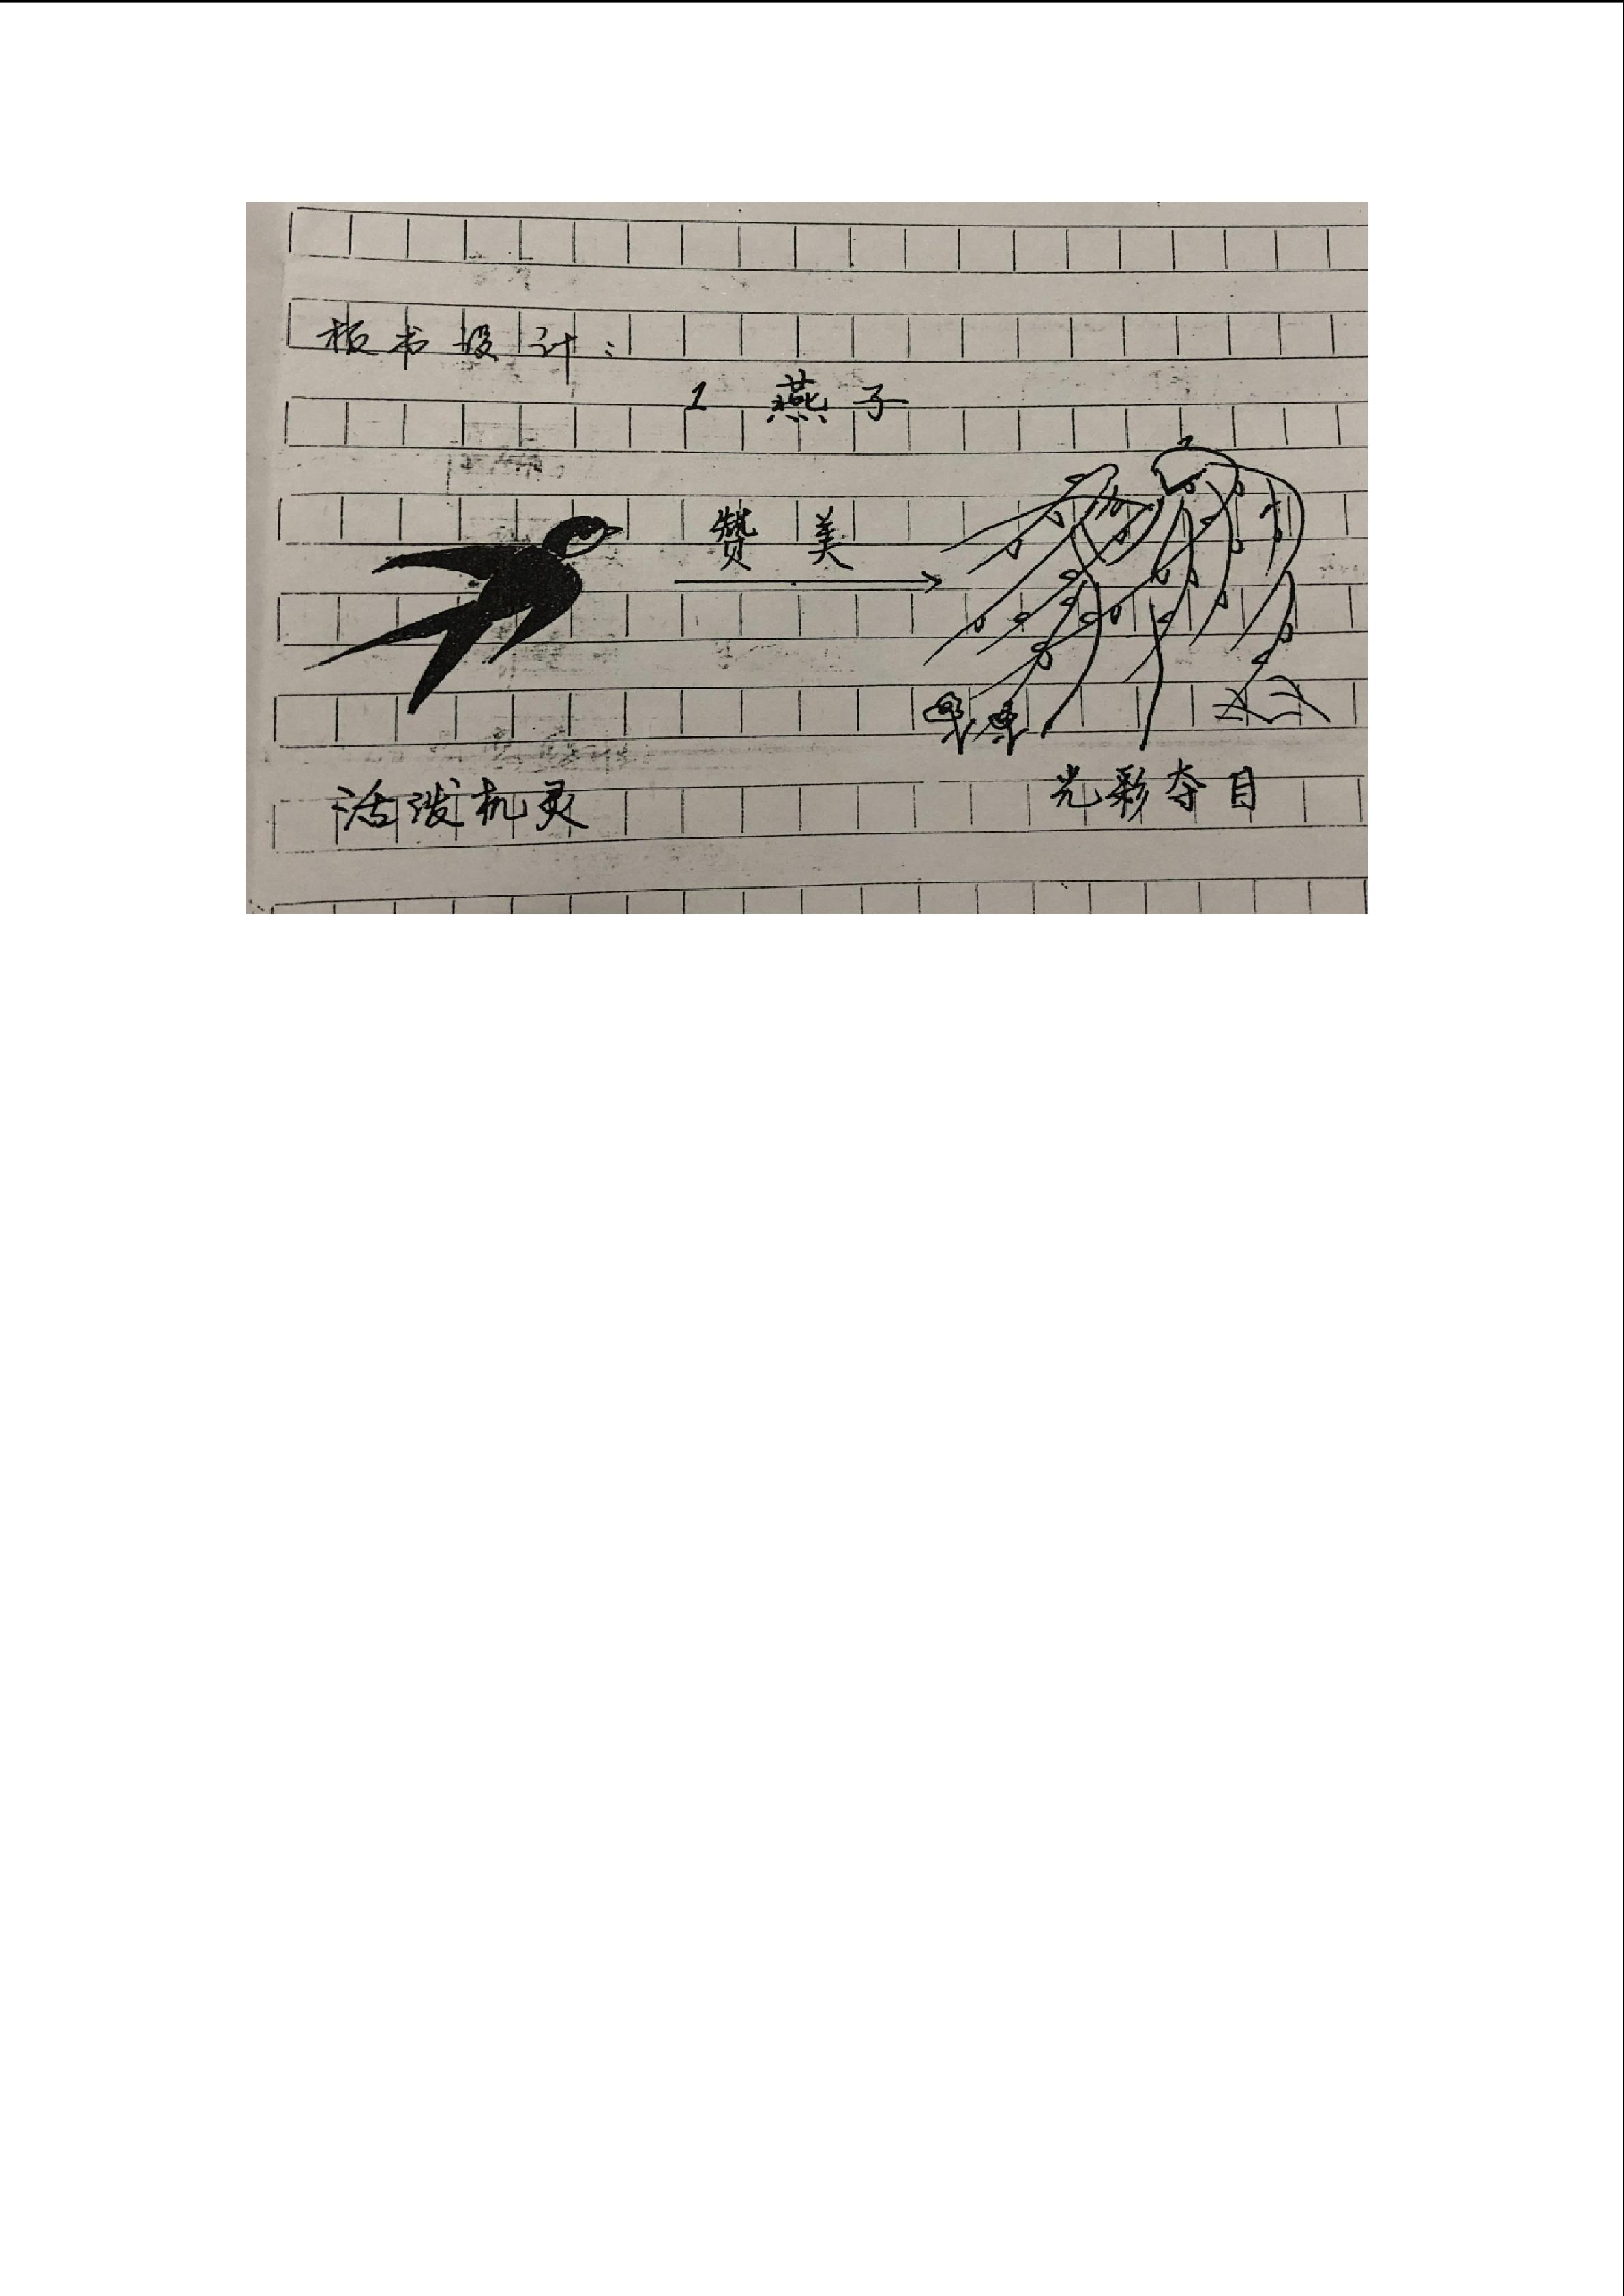 板书设计：
1 燕子
赞美
活泼机灵
光彩夺目